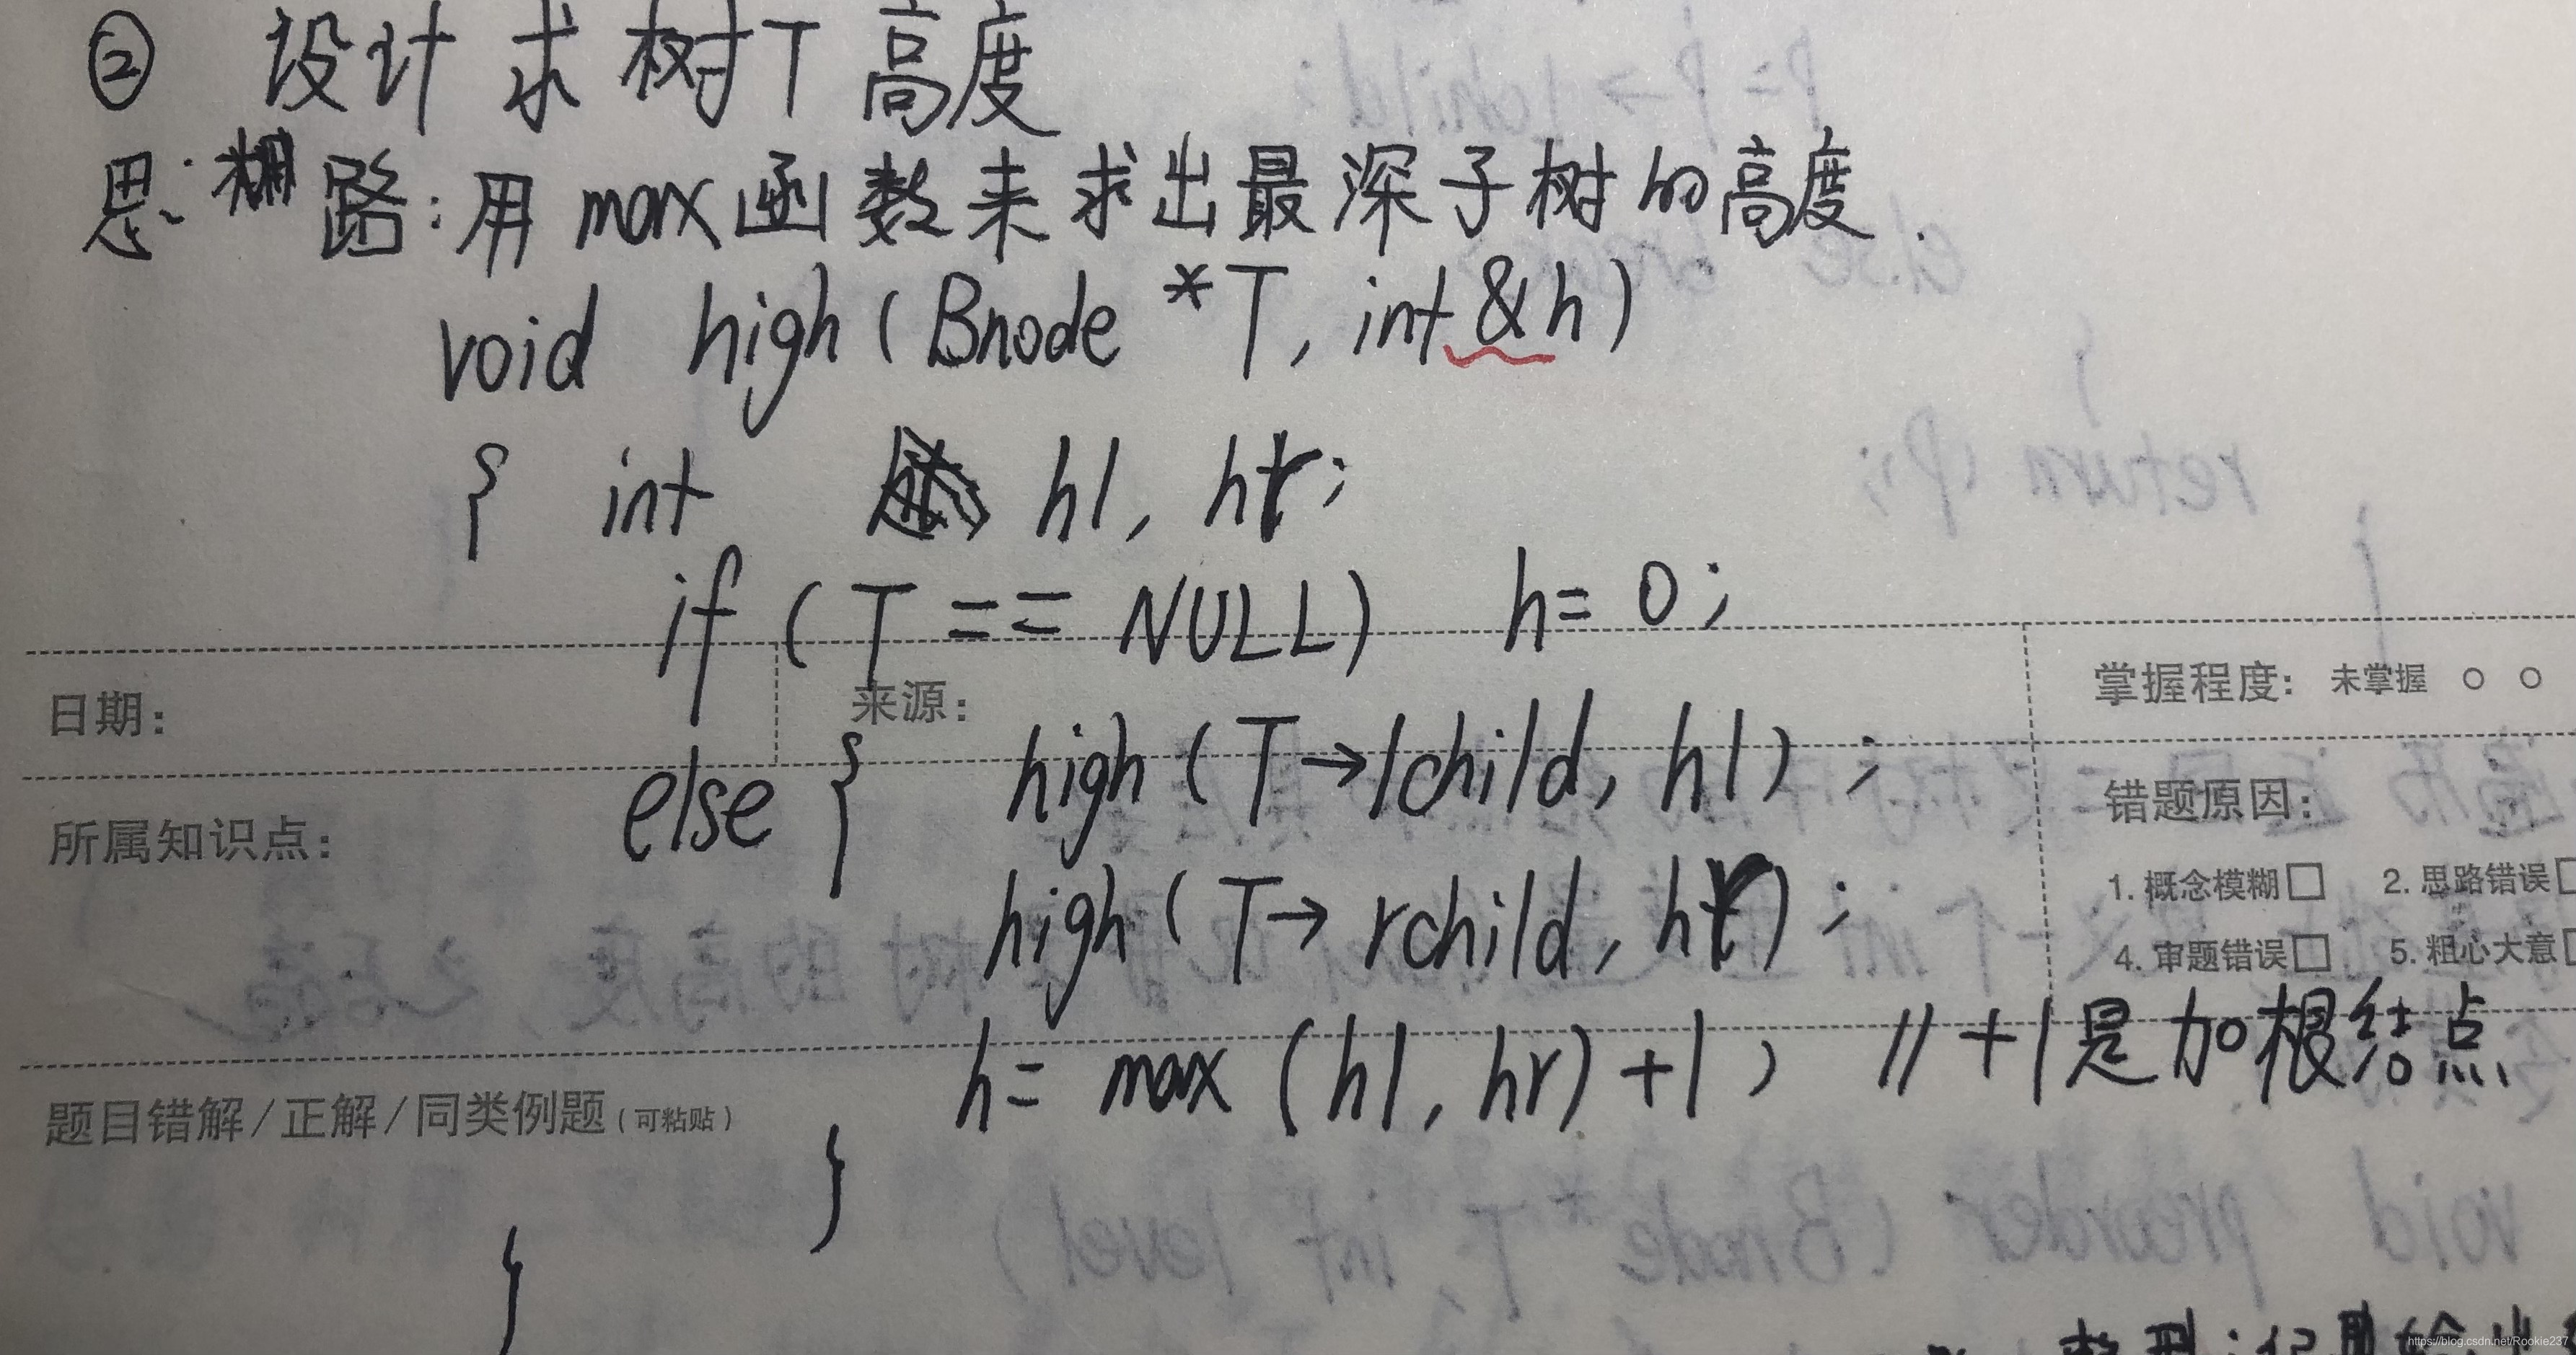 ② 设计求树T高度
思路:用max函数来求出最深子树的高度.
void high(Bnode *T, int &h)
{ int hl, hr;
if (T == NULL) h = 0;
日期: 来源: 掌握程度: 未掌握 ○ ○
else { high(T→lchild, hl);
所属知识点: 错题原因:
high(T→rchild, hr);
1. 概念模糊□ 2. 思路错误□
4. 审题错误□ 5. 粗心大意□
h = max(hl, hr)+1; //+1是加根结点
题目错解/正解/同类例题(可粘贴)
}
}
https://blog.csdn.net/Rookie237